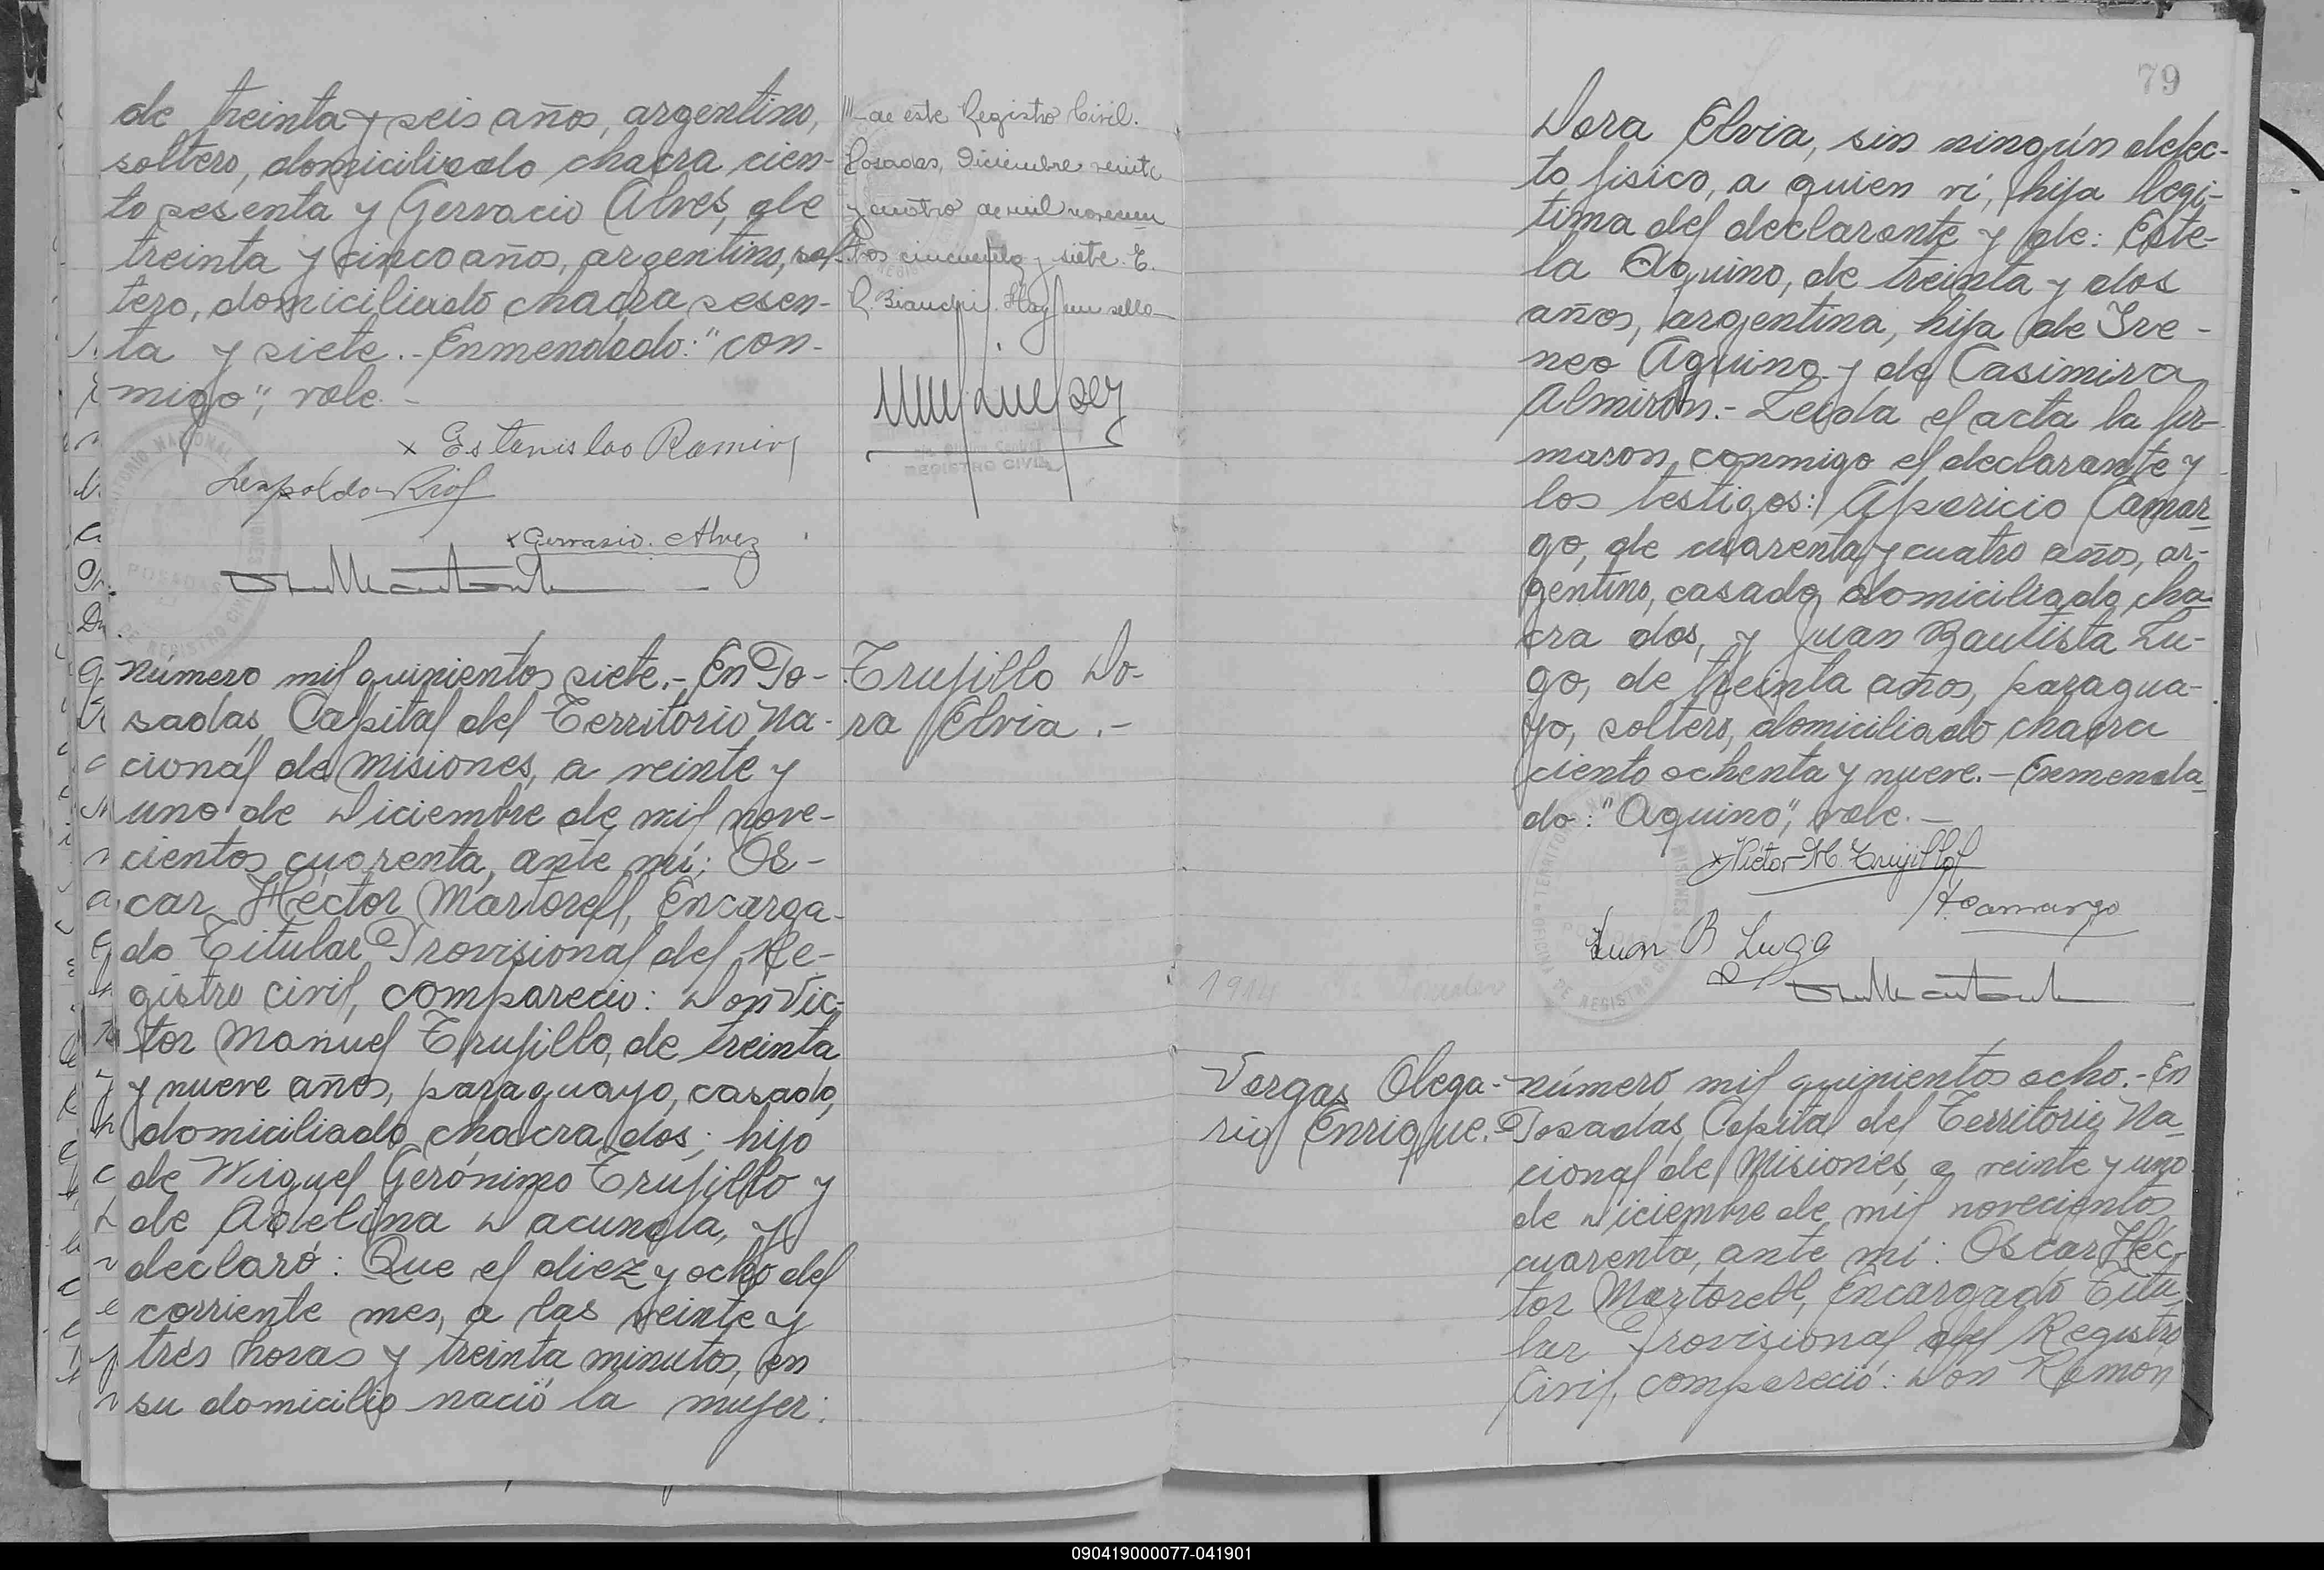 de treinta y seis años, argentino,
soltero, domiciliado chacra cien-
to sesenta y Gervacio Alves, de
treinta y cinco años, argentino, sol-
tero, domiciliado chacra sesen-
ta y siete.- Enmendado: "con-
migo"; vale.-
x Estanislao Ramir
Leopoldo
x Gervasio. Alvez
/// de este Registro Civil.
Posadas, Diciembre veinte
y cuatro de mil novecien
tos cincuenta y siete. E.
R. Bianchi. Hay un sello
REGISTRO CIVIL
número mil quinientos siete.- En Po-
sadas, Capital del Territorio Na-
cional de Misiones, a veinte y
uno de Diciembre de mil nove-
cientos cuarenta, ante mí: Os-
car Héctor Martorell, Encarga-
do Titular Provisional del Re-
gistro civil, compareció: Don Vic-
tor Manuel Trujillo, de treinta
y nueve años, paraguayo, casado,
domiciliado chacra dos; hijo
de Miguel Gerónimo Trujillo y
de Adelina Dacunda, y
declaró: Que el diez y ocho del
corriente mes, a las veinte y
trés horas y treinta minutos, en
su domicilio nació la mujer:
Trujillo Do-
ra Elvia.-
79
Dora Elvia, sin ningún defec-
to fisico, a quien ví, hija legi-
tima del declarante y de: Este-
la Aquino, de treinta y dos
años, argentina, hija de Ire-
neo Aquino y de Casimira
Almirón.- Leida el acta la fir-
maron conmigo el declarante y
los testigos: Aparicio Camar-
go, de cuarenta y cuatro años, ar-
gentino, casado, domiciliado cha-
cra dos, y Juan Bautista Lu-
go, de treinta años, paragua-
yo, soltero, domiciliado chacra
ciento ochenta y nueve.- Enmenda-
do: "Aquino"; vale.-
x Victor M. Trujillo
A. Camargo
Juan B Lugo
Vargas Olega-
rio Enrique.
número mil quinientos ocho.- En
Posadas, Capital del Territorio Na-
cional de Misiones, a veinte y uno
de Diciembre de mil novecientos
cuarenta, ante mí: Oscar Héc-
tor Martorell, Encargado Titu-
lar Provisional del Registro
Civil, compareció: Don Ramón
090419000077-041901